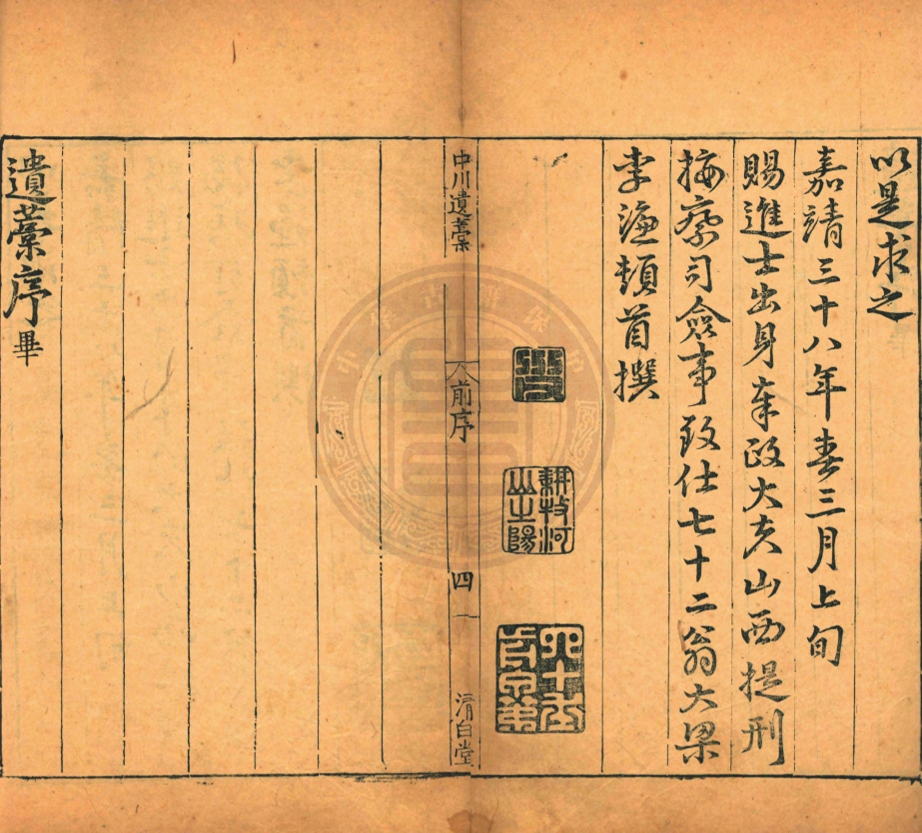 以是求之
嘉靖三十八年春三月上旬
賜進士出身奉政大夫山西提刑
按察司僉事致仕七十二翁大梁
李濂頓首撰
耕牧河
山之陽
中川遺藁
前序
四
清白堂
遺藁序畢